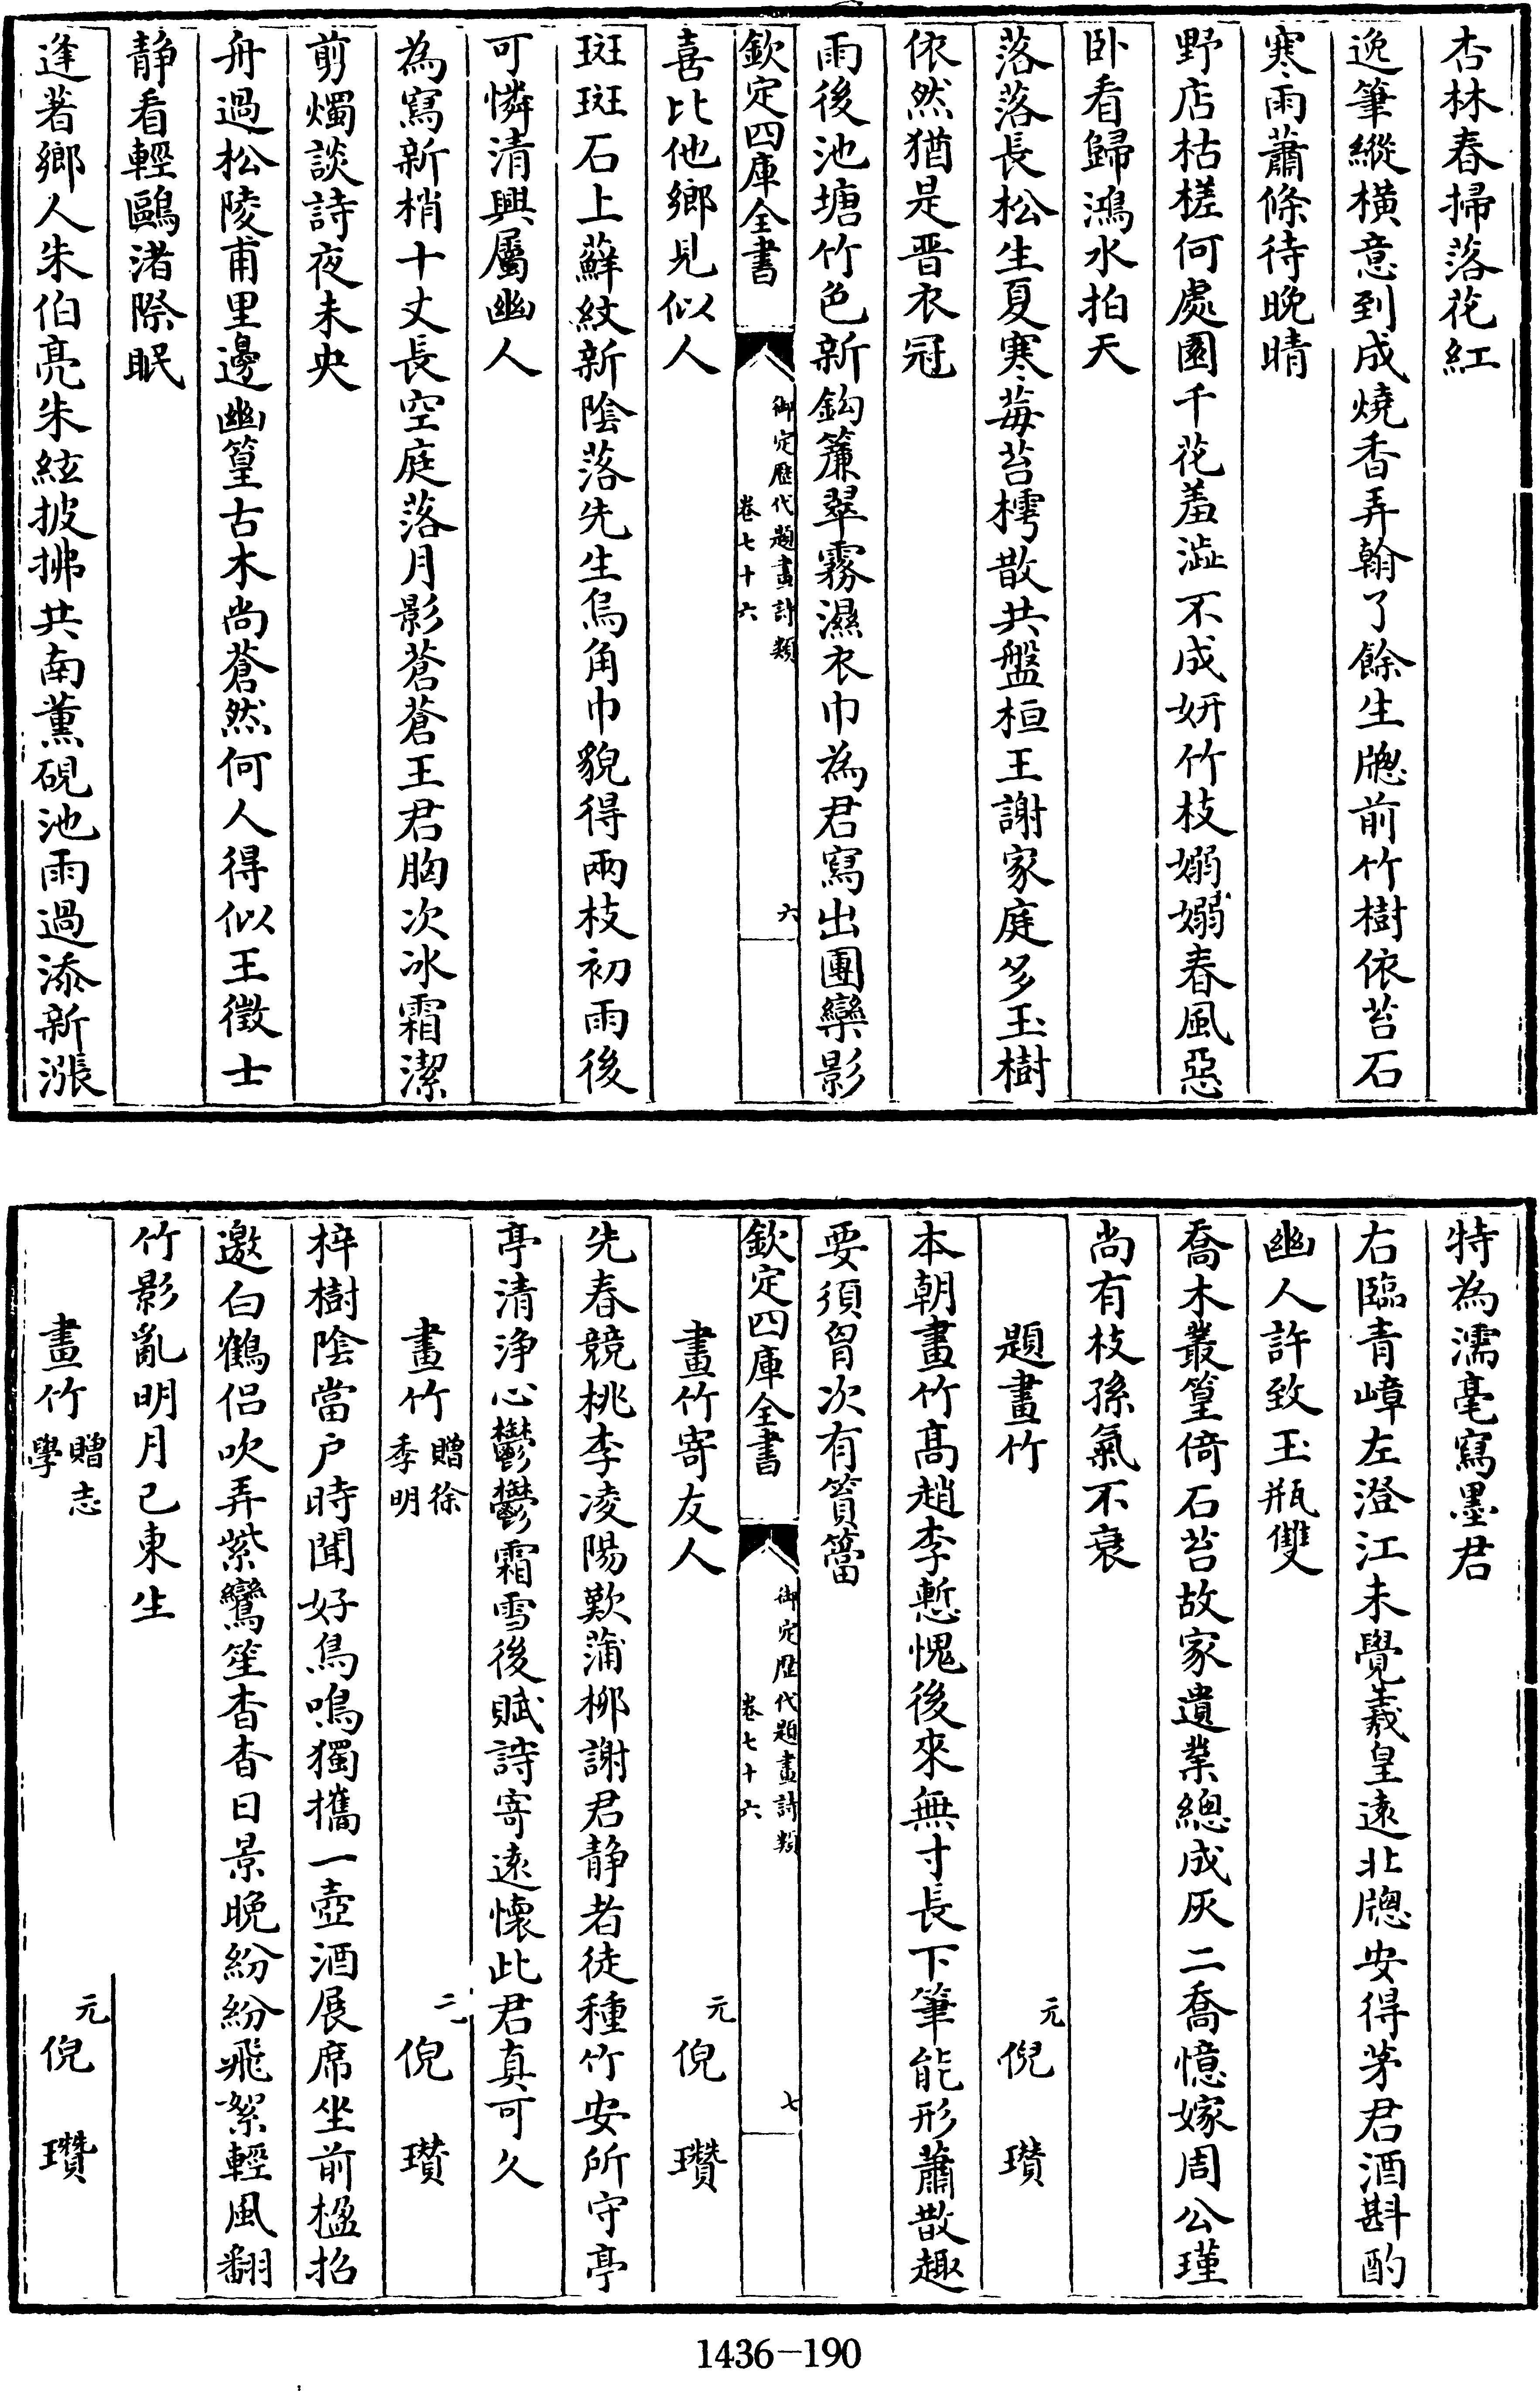 杏林春掃落花紅
逸筆縱橫意到成燒香弄翰了餘生牎前竹樹依苔石
寒雨蕭條待晚晴
野店枯槎何處園千花羞澁不成妍竹枝嫋嫋春風惡
卧看歸鴻水拍天
落落長松生夏寒莓苔樗散共盤桓王謝家庭多玉樹
依然猶是晋衣冠
雨後池塘竹色新鈎簾翠霧濕衣巾為君寫出團欒影
欽定四庫全書
御定歷代題畫詩類
卷七十六
六
喜比他鄉見似人
斑斑石上蘚紋新陰落先生烏角巾貌得兩枝初雨後
可憐清興屬幽人
為寫新梢十丈長空庭落月影蒼蒼王君胸次冰霜潔
剪燭談詩夜未央
舟過松陵甫里邊幽篁古木尚蒼然何人得似王徵士
静看輕鷗渚際眠
逢著鄉人朱伯亮朱絃披拂共南薰硯池雨過添新漲
特為濡毫寫墨君
右臨青嶂左澄江未覺羲皇遠北牎安得茅君酒斟酌
幽人許致玉瓶雙
喬木叢篁倚石苔故家遺業總成灰二喬憶嫁周公瑾
尚有枝孫氣不衰
題畫竹 元倪瓚
本朝畫竹髙趙李慙愧後來無寸長下筆能形蕭散趣
要須胷次有篔簹
欽定四庫全書
御定歷代題畫詩類
卷七十六
七
畫竹寄友人 元倪瓚
先春競桃李凌陽歎蒲柳謝君静者徒種竹安所守亭
亭清淨心鬱鬱霜雪後賦詩寄遠懷此君真可久
畫竹贈徐季明 元倪瓚
梓樹陰當户時聞好鳥鳴獨攜一壺酒展席坐前楹招
邀白鶴侣吹弄紫鸞笙杳杳日景晚紛紛飛絮輕風翻
竹影亂明月已東生
畫竹贈志學 元倪瓚
1436-190